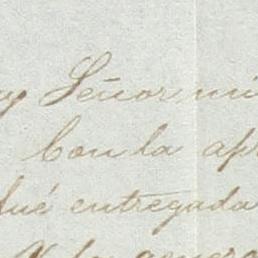 y Señor mi
Con la ap
fué entregada